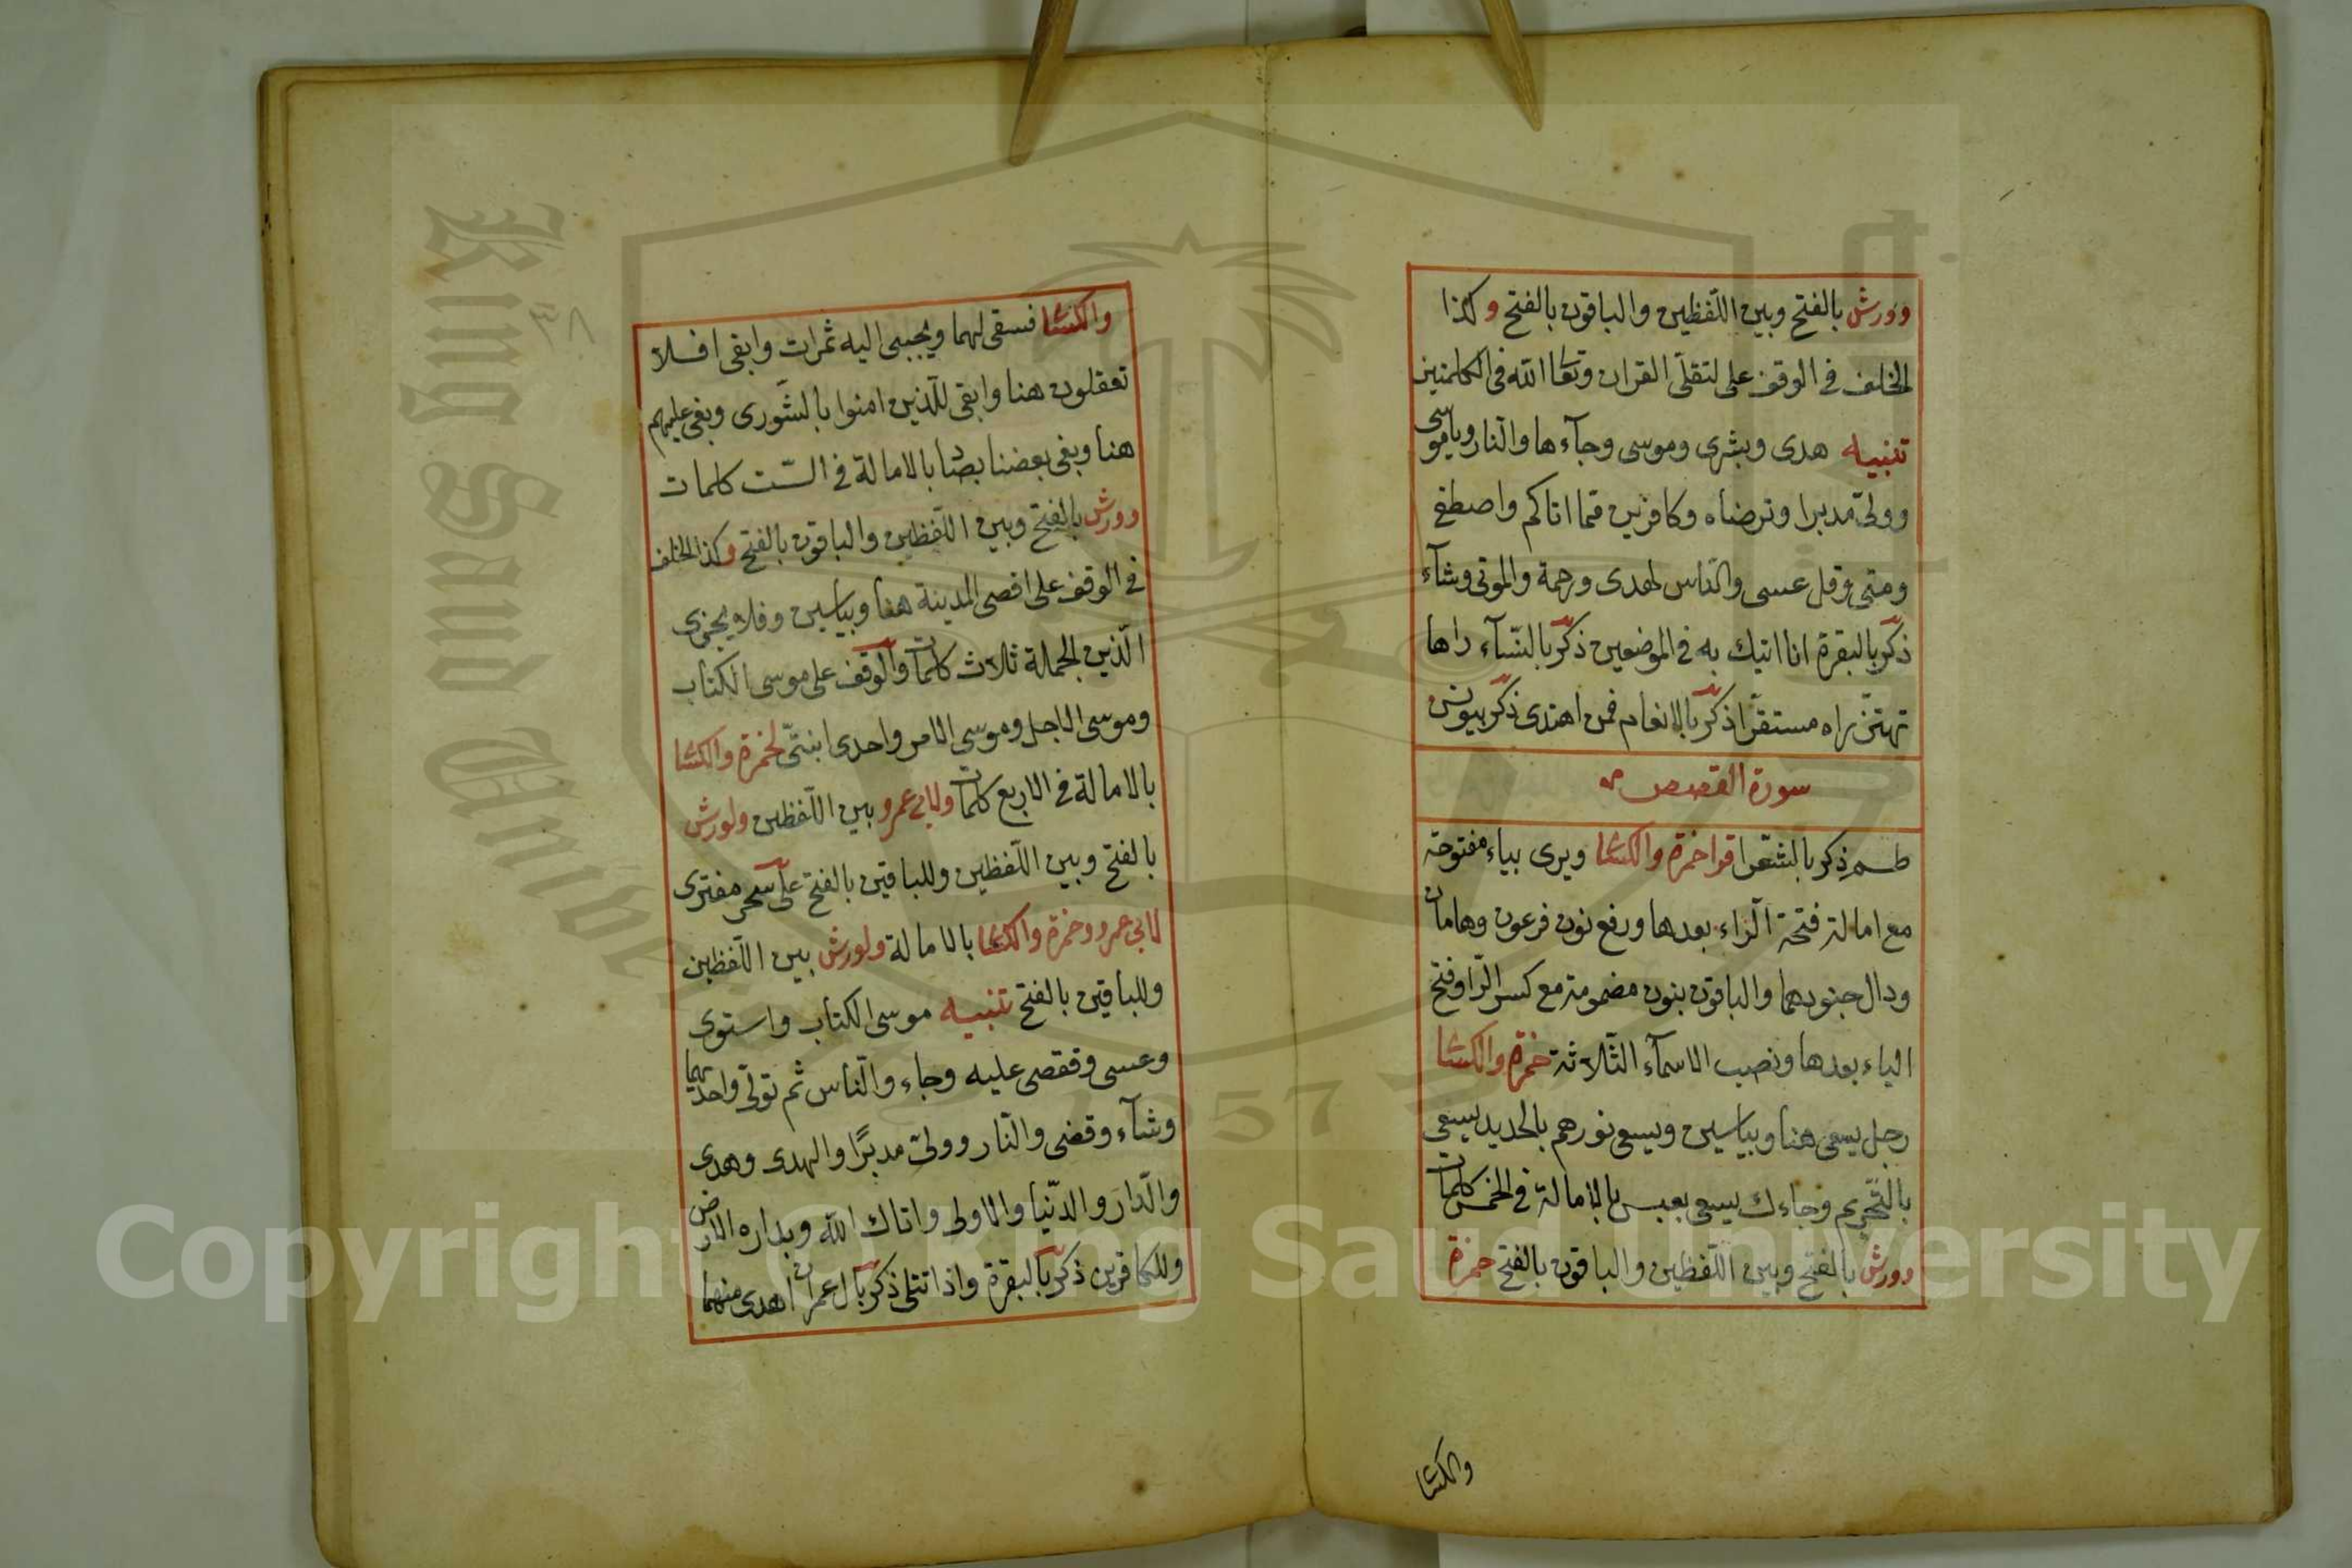 وورش بالفتح وبين اللّفظين والباقون بالفتح وكذا
الخلف فى الوقف على لتقلّى القران وتعا الله فى الكلمتين
تنبيه هدى وبشرى وموسى وجآءها والنار وياموسى
وولىّ مدبرا وترضاه وكافرين فما اتاكم واصطفى
ومتى وقل عسى والنّاس لهدى ورحمة والموتى وشآء
ذكر بالبقرة انا اتيك به فى الموضعين ذكر بالنّسآء راها
تهتزّ راه مستقرّا ذكر بالانعام فمن اهتدى ذكر بيونس
سورة القصص
طسم ذكر بالشّعرا قرا حمزة والكسا ويرى بياء مفتوحة
مع امالة فتحة الرّاء بعدها ورفع نون فرعون وهامان
ودال جنودهما والباقون بنون مضمومة مع كسر الرّا وفتح
الياء بعدها ونصب الاسمآء الثّلاثة حمزة والكسا
رجل يسعى هنا وبياسين ويسعى نورهم بالحديد يسعى
بالتّحريم وجاءك يسعى بعبس بالامالة فى الخمس كلمات
وورش بالفتح وبين اللّفظين والباقون بالفتح حمزة
والكسا
والكسا فسقى لهما ويجبى اليه ثمرات وابقى افلا
تعقلون هنا وابقى للّذين امنوا بالشّورى وبغى عليهم
هنا وبغى بعضنا بصا بالامالة فى السّت كلمات
وورش بالفتح وبين اللّفظين والباقون بالفتح وكذا الخلف
فى الوقف على اقصى المدينة هنا وبياسين وفلا يجزى
الّذين الجملة ثلاث كلمات والوقف على موسى الكتاب
وموسى الاجل وموسى الامر واحدى ابنتىّ لحمزة والكسا
بالامالة فى الاربع كلمات ولابى عمرو بين اللّفظين ولورش
بالفتح وبين اللّفظين وللباقين بالفتح على سحر مفترى
لابى عمرو وحمزة والكسا بالامالة ولورش بين اللّفظين
وللباقين بالفتح تنبيه موسى الكتاب واستوى
وعسى وفقضى عليه وجاء والنّاس ثم تولّى واحديهما
وشآء وقضى والنّار وولىّ مدبرًا والهدى وهدى
والدّار والدّنيا والاولى واتاك الله وبداره الارض
وللكافرين ذكر بالبقرة واذا تتلى ذكر بال عمران اهدى منهما
٣٨
King Saud University
1957
Copyright © King Saud University